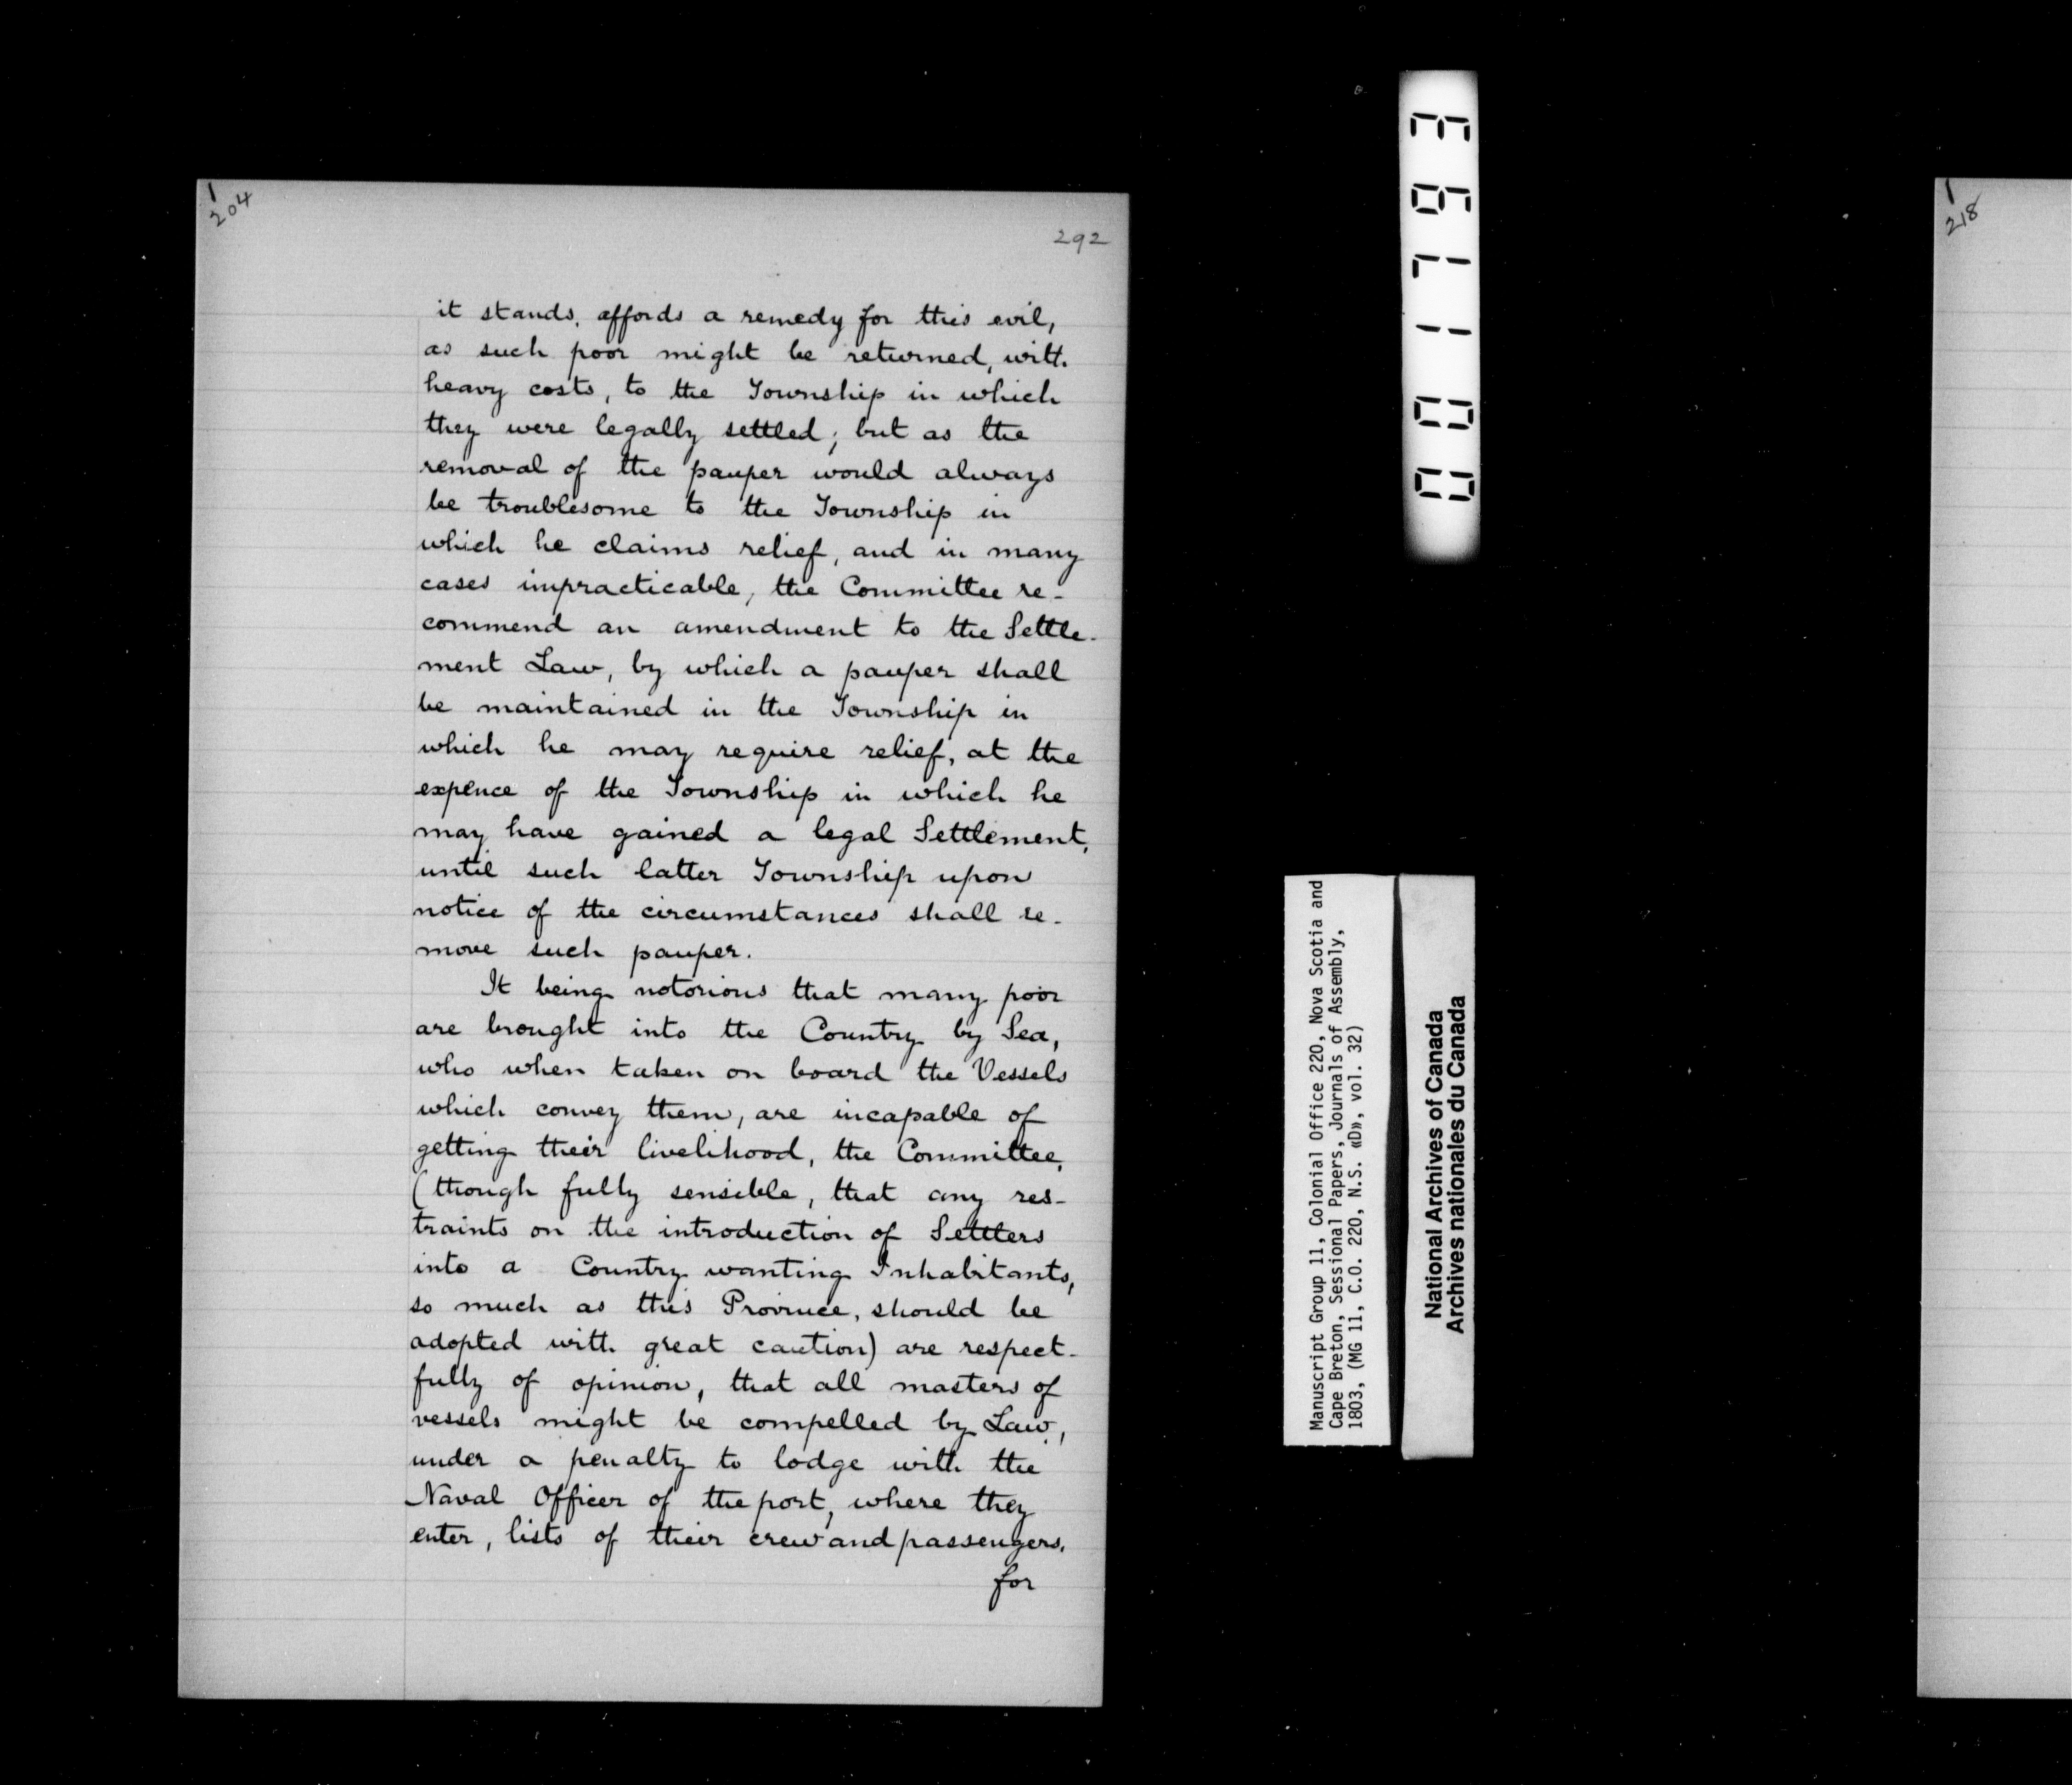 204
292
it stands, affords a remedy for this evil,
as such poor might be returned, with
heavy costs, to the Township in which
they were legally settled; but as the
removal of the pauper would always
be troublesome to the Township in
which he claims relief, and in many
cases impracticable, the Committee re-
commend an amendment to the Settle-
ment Law, by which a pauper shall
be maintained in the Township in
which he may require relief, at the
expence of the Township in which he
may have gained a legal Settlement,
until such latter Township upon
notice of the circumstances shall re-
move such pauper.
It being notorious that many poor
are brought into the Country by Sea,
who when taken on board the Vessels
which convey them, are incapable of
getting their livelihood, the Committee,
(though fully sensible, that any res-
traints on the introduction of Settlers
into a Country wanting Inhabitants,
so much as this Province, should be
adopted with great caution) are respect-
fully of opinion, that all masters of
vessels might be compelled by Law,
under a penalty to lodge with the
Naval Officer of the port, where they
enter, lists of their crew and passengers,
for
Manuscript Group 11, Colonial Office 220, Nova Scotia and
Cape Breton, Sessional Papers, Journals of Assembly,
1803, (MG 11, C.O. 220, N.S. «D», vol. 32)
National Archives of Canada
Archives nationales du Canada
218